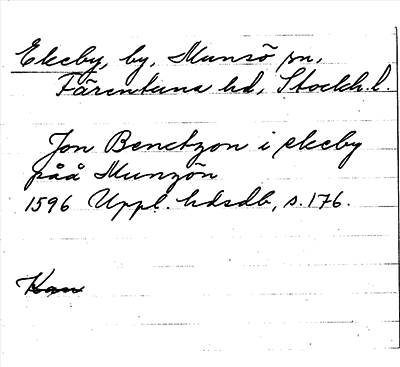 Ekeby, by, Munsö sn,
Färentuna hd, Stockh. l.
Jon Benctzon i ekeby
påå Munzön
1596 Uppl. hdsdb, s. 176.